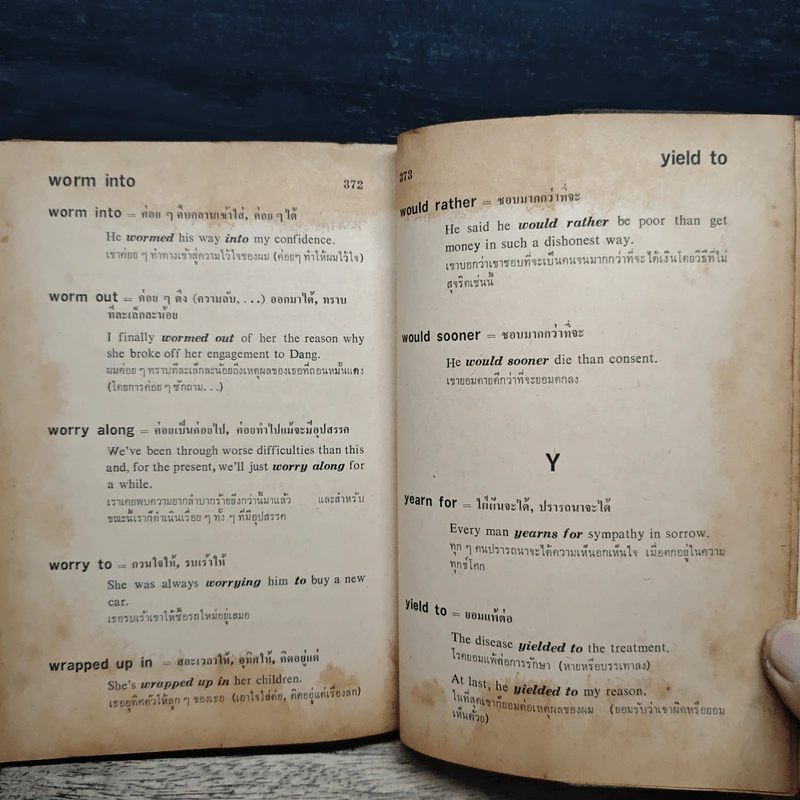 worm into
372
worm into = ค่อย ๆ คืบคลานเข้าใส่, ค่อย ๆ ได้
He wormed his way into my confidence.
เขาค่อย ๆ ทำทางเข้าสู่ความไว้ใจของผม (ค่อยๆ ทำให้ผมไว้ใจ)
worm out = ค่อย ๆ ดึง (ความลับ, . . .) ออกมาได้, ทราบ
ทีละเล็กละน้อย
I finally wormed out of her the reason why
she broke off her engagement to Dang.
ผมค่อย ๆ ทราบทีละเล็กละน้อยถึงเหตุผลของเธอที่ถอนหมั้นแดง
(โดยการค่อย ๆ ซักถาม. . .)
worry along = ค่อยเป็นค่อยไป, ค่อยทำไปแม้จะมีอุปสรรค
We've been through worse difficulties than this
and, for the present, we'll just worry along for
a while.
เราเคยพบความยากลำบากร้ายยิ่งกว่านี้มาแล้ว และสำหรับ
ขณะนี้เราก็ดำเนินเรื่อย ๆ ทั้ง ๆ ที่มีอุปสรรค
worry to = กวนใจให้, รบเร้าให้
She was always worrying him to buy a new
car.
เธอรบเร้าเขาให้ซื้อรถใหม่อยู่เสมอ
wrapped up in = สละเวลาให้, อุทิศให้, คิดอยู่แต่
She's wrapped up in her children.
เธออุทิศตัวให้ลูก ๆ ของเธอ (เอาใจใส่ต่อ, คิดอยู่แต่เรื่องลูก)
373
yield to
would rather = ชอบมากกว่าที่จะ
He said he would rather be poor than get
money in such a dishonest way.
เขาบอกว่าเขาชอบที่จะเป็นคนจนมากกว่าที่จะได้เงินโดยวิธีที่ไม่
สุจริตเช่นนี้
would sooner = ชอบมากกว่าที่จะ
He would sooner die than consent.
เขายอมตายดีกว่าที่จะยอมตกลง
Y
yearn for = ใฝ่ฝันจะได้, ปรารถนาจะได้
Every man yearns for sympathy in sorrow.
ทุก ๆ คนปรารถนาจะได้ความเห็นอกเห็นใจ เมื่อตกอยู่ในความ
ทุกข์โศก
yield to = ยอมแพ้ต่อ
The disease yielded to the treatment.
โรคยอมแพ้ต่อการรักษา (หายหรือบรรเทาลง)
At last, he yielded to my reason.
ในที่สุดเขาก็ยอมต่อเหตุผลของผม (ยอมรับว่าเขาผิดหรือยอม
เห็นด้วย)